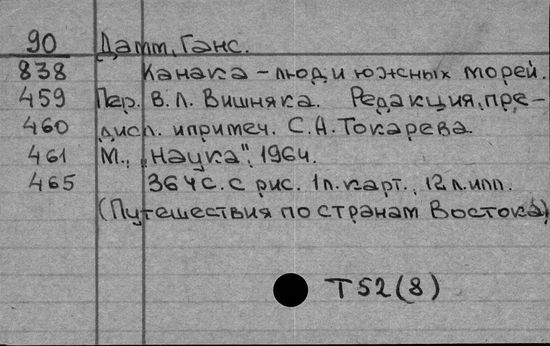 90 Дамм, Ганс.
838 Канака – люди южных морей.
459 Пер. В.Л. Вишняка. Редакция, пре-
460 дисл. и примеч. С.А. Токарева.
461 М., „Наука", 1964.
465 364 с. с рис. 1 л. карт., 12 л. илл.
(Путешествия по странам Востока)
Т52(8)